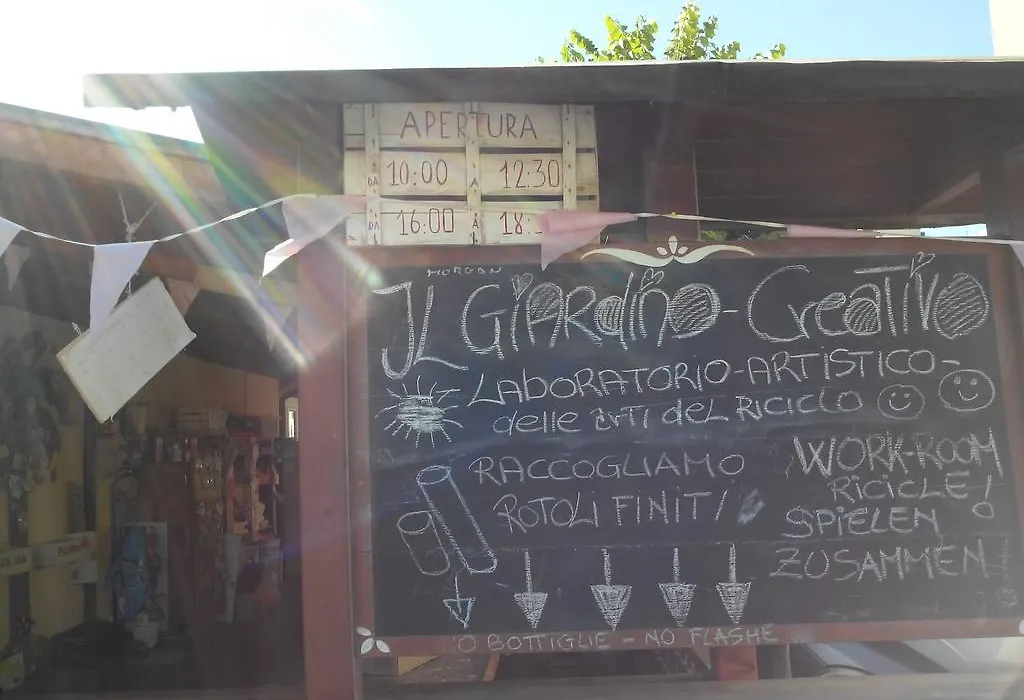 APERTURA
DA 10:00 A 12:30
DA 16:00 A 18:
MORGAN
IL GIARDINO-CREATIVO
LABORATORIO-ARTISTICO-
delle arti del RICICLO
RACCOGLIAMO
ROTOLI FINITI
WORK-ROOM
RICICLE!
SPIELEN
ZUSAMMEN
O BOTTIGLIE - NO FLASHE